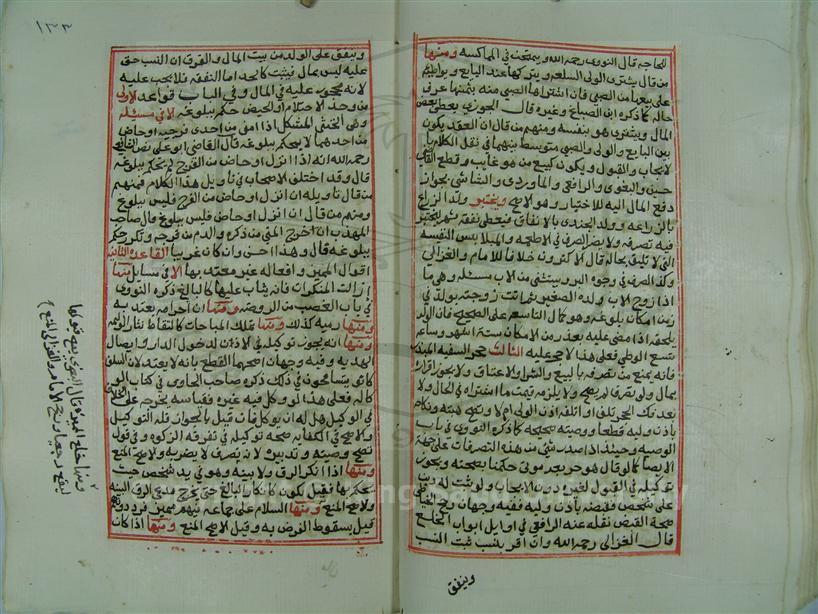 للحاجه قال النووى رحمه الله ويمتحنه في المماكسه ومنها
من قال يشترى الولى السلعه ويتركها عند البايع ويواطيه
على بيعها من الصبي فان اشتراها الصبي منه بثمنها عرف
حاله كما ذكره ابن الصباغ وغيره قال الجوزى يعطى بعض
المال ويشترى هو بنفسه ومنهم من قال ان العقد يكون
بين البايع والولى والصبي متوسط بينهم في نقل الكلام
لايجاب والقبول ويكون كبيع من هو غايب وقطع القاضى
حسين والبغوى والرافعى والماوردى والشاشى بجواز
دفع المال اليه للاختبار وهو الاصح ويختبر ولد الزراع
بالزراعه وولد الجندى بالانفاق فيعطى نفقة شهر ليختبر
فيه تصرفه ولا يضر الصرف في الاطعمه والملابس النفسه
التى لا تليق بحاله قال الاكثرون خلافا للامام والغزالى
وكذا الصرف في وجوه البر ويستثنى من الاب مسئله وهى ما
اذا زوج الاب ولده الصغير ثم اتت زوجته بولد في
زمن امكان بلوغه وهو كمال التاسعه على الصحيح فان الولد
يلحقه اذا مضى عليه بعد زمن الامكان ستة اشهر وساعه
تسع الوطي فعلى هذا لا حجر عليه الثالث حجر السفيه المبذر
فانه يمنع من تصرفه بالبيع والشرا والاعتاق ولا يجوز اقراره
بمال ولو تصرف لم يصح ولا يلزمه قيمة ما اشتراه في الحال ولا
بعد فك الحجر تلف او اتلفه اذن الولى ام لا وتصح هبته ونكاحه
باذن وليه قطعا ووصيته صحيحه كما ذكره النووى في باب
الوصيه وحيث اذا صدر شى من هذه التصرفات على جهة
الايصا كما لو قال هو حر بعد موتى حكمنا بصحته ويجوز
توكيله في القبول لغيره دون الايجاب ولو ثبت له دين
على شخص فقبضه باذن وليه ففيه وجهان رجح الحناطى
صحة القبض نقله عنه الرافعى في اوايل ابواب الخلع
قال الغزالى رحمه الله وان اقر بنسب ثبت النسب
وينفق
١٣٣
وينفق على الولد من بيت المال والفرق ان النسب حق
عليه ليس بمال فيثبت كالحد اما النفقه فلا يجب عليه
لانه محجور عليه في المال وفي الباب قواعد الاولى
من وجد الاحتلام او الحيض حكم ببلوغه الا في مسئله
وهى الخنثى المشكل اذا امنى من احدى فرجيه او حاض
من احدهما لا يحكم ببلوغه قال القاضى ابو على نص الشافعى
رحمه الله انه اذا انزل او حاض من الفرج لم يحكم ببلوغه
قال وقد اختلف الاصحاب في تاويل هذا الكلام فمنهم
من قال تاويله ان انزل او حاض من الفرج فليس ببلوغ
ومنهم من قال ان انزل او حاض فليس ببلوغ وقال صاحب
المهذب ان اخرج المنى من ذكره والدم من فرجه وتكرر حكم
ببلوغه قال وهذا حسن وان كان غريبا القاعدة الثانيه
اقوال المميز وافعاله غير معتد بها الا في مسايل منها
ازالت المنكرات فانه يثاب عليها كالبالغ ذكره النووى
في باب الغصب من الروضه ومنها ان احرامه يعتد به
ومنها رميه كذلك ومنها تملك المباحات كالتقاط نثار الوليمه
ومنها انه يجوز توكيله في الاذن لدخول الدار وايصال
الهديه وفيه وجهان اصحهما القطع بانه لا يعتد لان السلف
كانوا يتسامحون في ذلك ذكره صاحب الحاوى في كتاب الو
كاله فعلى هذا لو وكل فيه غيره فقياسه يخرجه على الخلاف
في الوكيل هل له ان يوكل فان قيل بالجواز فله التوكيل
والاصح في الكفايه صحه توكيله في تفرقه الزكوه وفي قول
تصح وصيته وتدبيره لانه تصرف لا يضر به والاصح المنع
ومنها اذا انكر الرق ولا بينه وهو في يد شخص حيث
يحكم بها فقيل يكون كانكار البالغ حتى يخرج مدعى الرق البينه
والاصح المنع ومنها السلام على جماعه فيهم مميز فرد دونهم
قيل بسقوط الفرض به وقيل الاصح المنع ومنها اذا كان
ومنها خلع المميزه قال البغوى يصح قبولها
ليقع رجعيا ورجح الامام والغزالى المنع